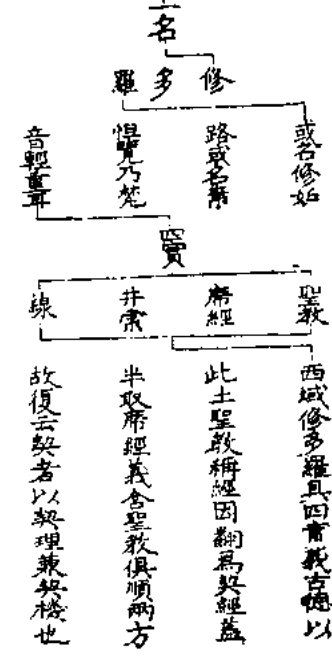 名
修多羅
或名修妬
路或名素
怛覽乃梵
音輕重耳
四實
聖教
席經
井索
線
西域修多羅具四實義古德以
此土聖教稱經因翻為契經蓋
半取席經義含聖教俱順兩方
故復云契者以契理兼契機也